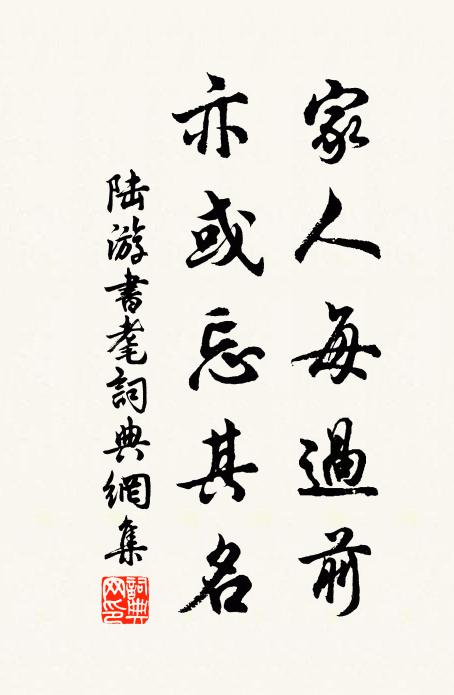 家人每過前
亦或忘其名
陆游書耄詞典網集
詞典網印